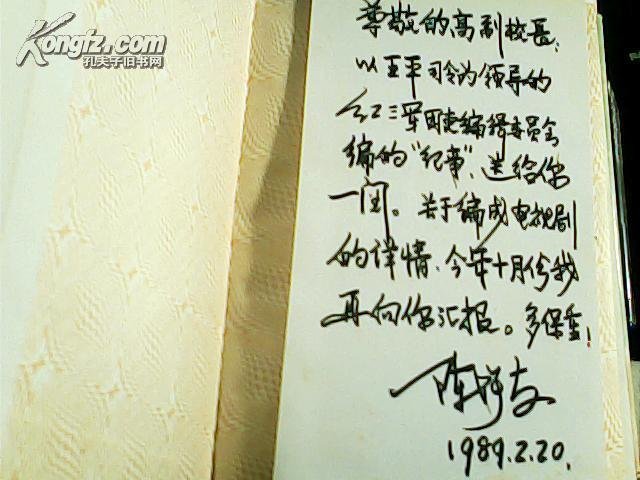 Kongfz.com
孔夫子旧书网
尊敬的高副校长:
以王平司令为领导的
红三军团史编辑委员会
编的“纪事”,送给你
一阅。关于编成电视剧
的详情、今年十月份我
再向你汇报。多保重!
陈
1989.2.20.